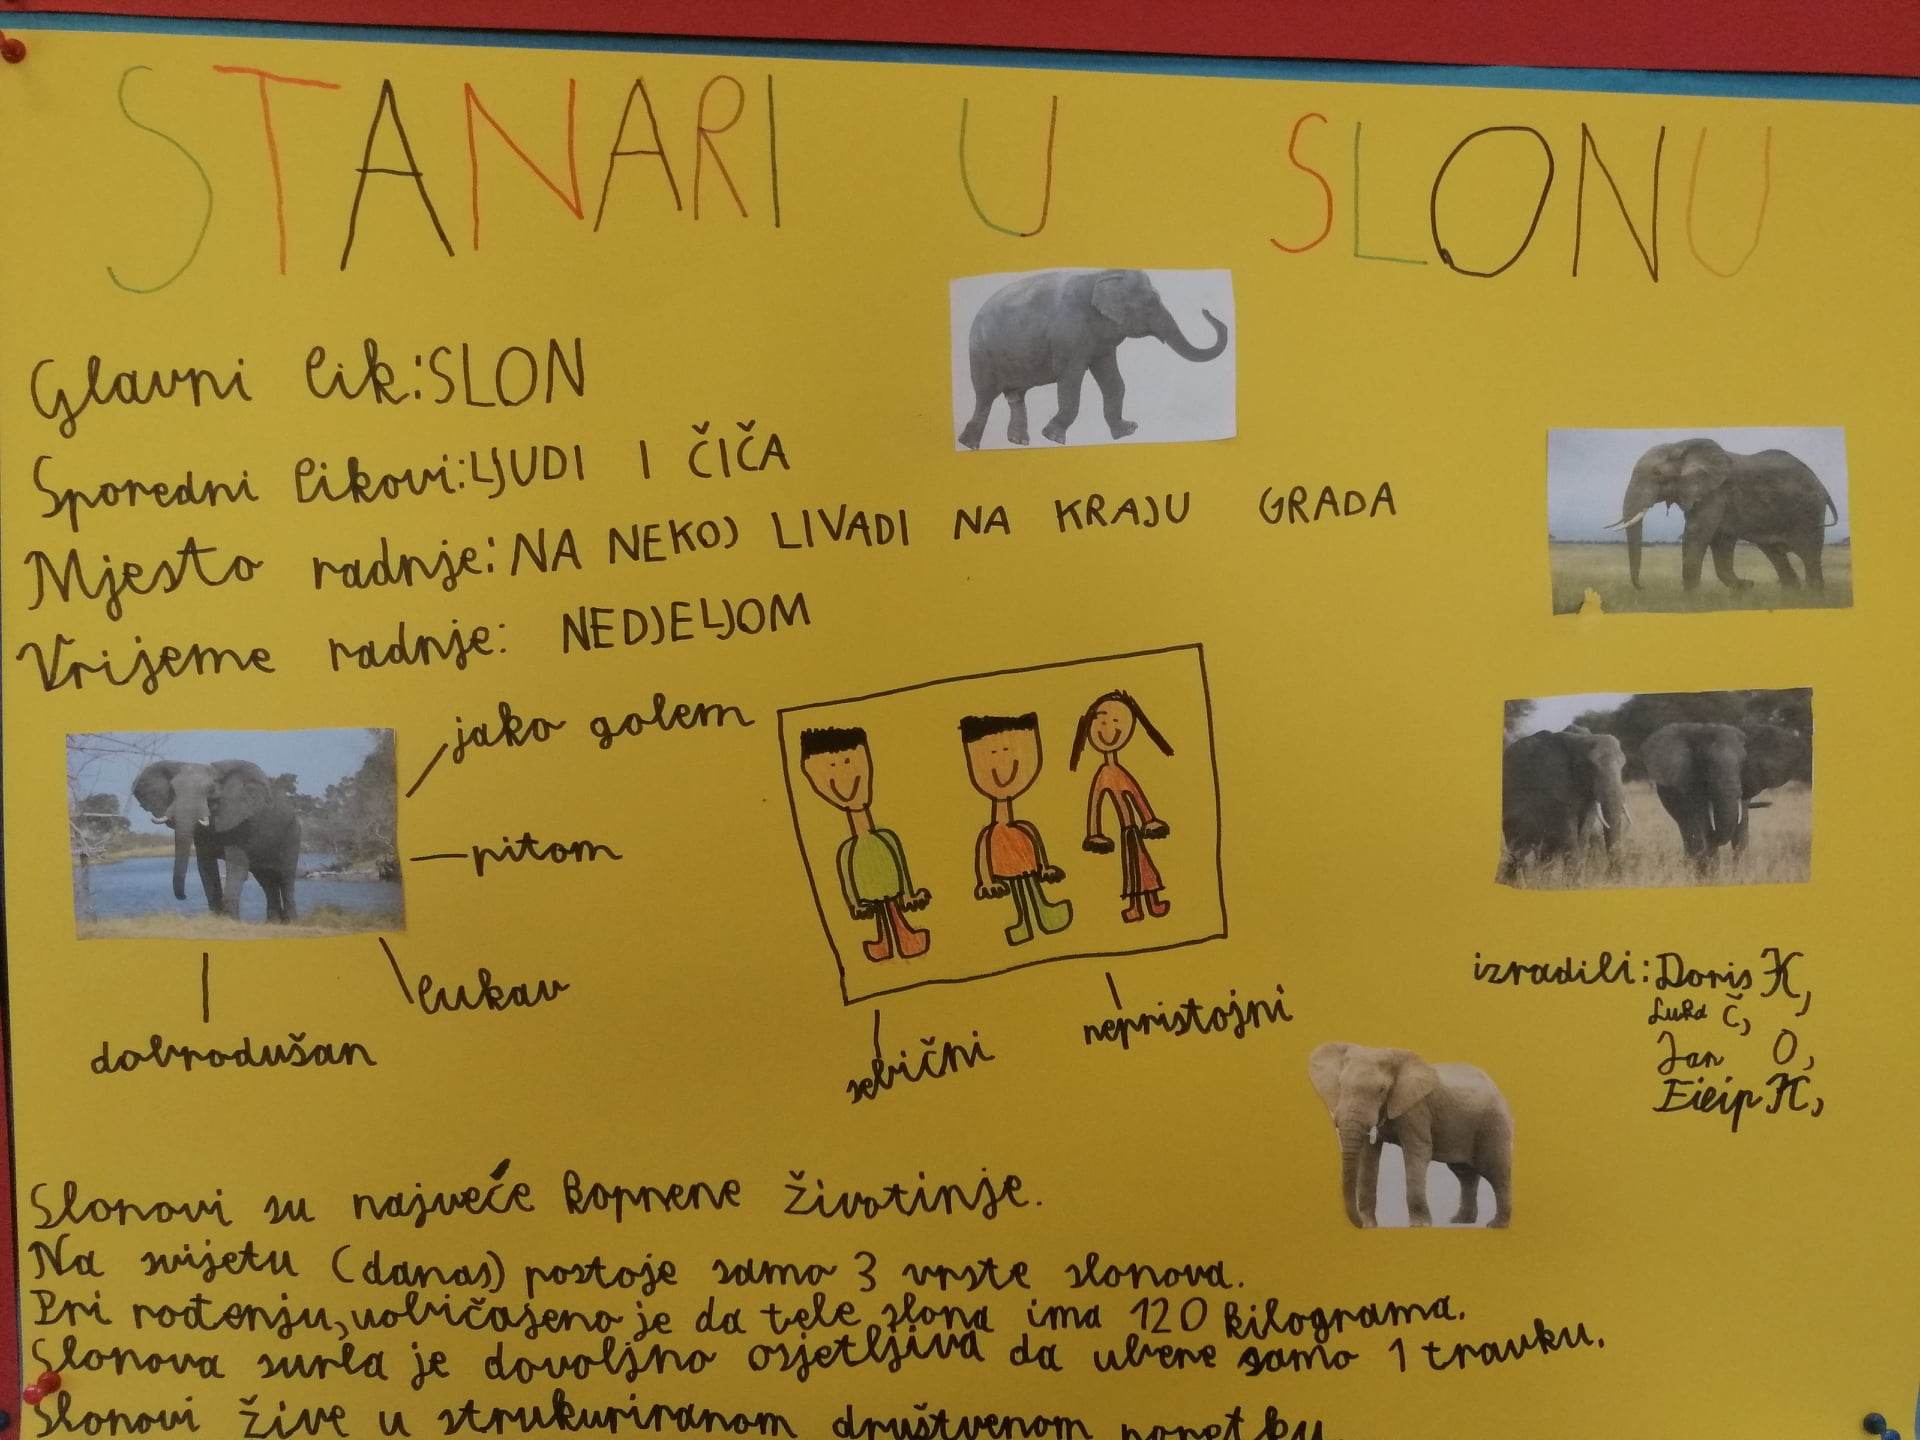 STANARI U SLONU
Glavni lik: SLON
Sporedni likovi: LJUDI I ČIČA
Mjesto radnje: NA NEKOJ LIVADI NA KRAJU GRADA
Vrijeme radnje: NEDJELJOM
jako golem
pitom
lukav
dobrodušan
sebični
nepristojni
izradili: Doris K,
Luka Č,
Jan O,
K,
Slonovi su najveće kopnene životinje.
Na svijetu (danas) postoje samo 3 vrste slonova.
Pri rođenju, uobičajeno je da tele slona ima 120 kilograma.
Slonova surla je dovoljno osjetljiva da ubere samo 1 travku.
Slonovi žive u strukuriranom društvenom poretku.